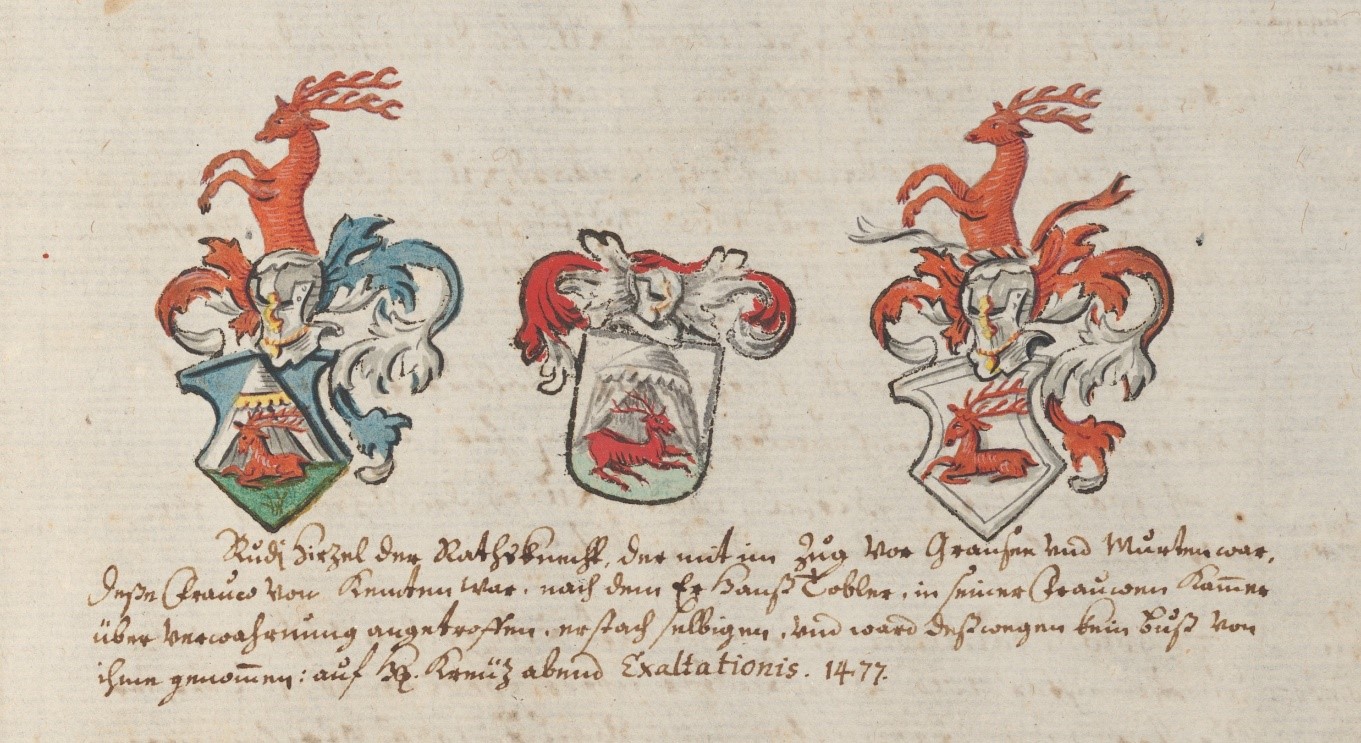 Rudj Hirzel der Rathsknecht, der mit im Zug vor Gransen vnd Murten war,
deße Frauw von Kempten war. nach dem Er Hanß Tobler, in seiner Frauwen Kam̄er
über verwahrnung angetroffen, erstach selbigen, vnd ward deßwegen kein Buß von
ihme genom̄en: auf Hl. Kreütz abend Exaltationis. 1477.